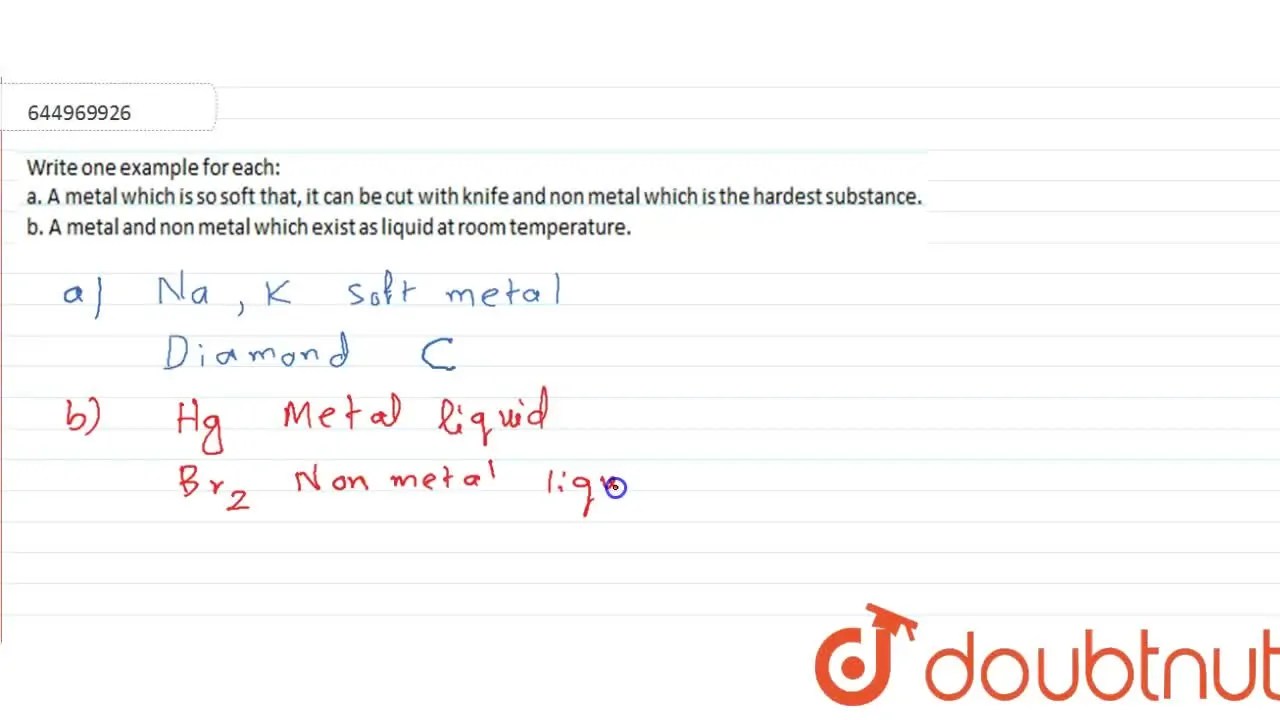 644969926
Write one example for each:
a. A metal which is so soft that, it can be cut with knife and non metal which is the hardest substance.
b. A metal and non metal which exist as liquid at room temperature.
a) Na, K soft metal
Diamond C
b) Hg Metal liquid
Br2 Non metal liqu
doubtnut